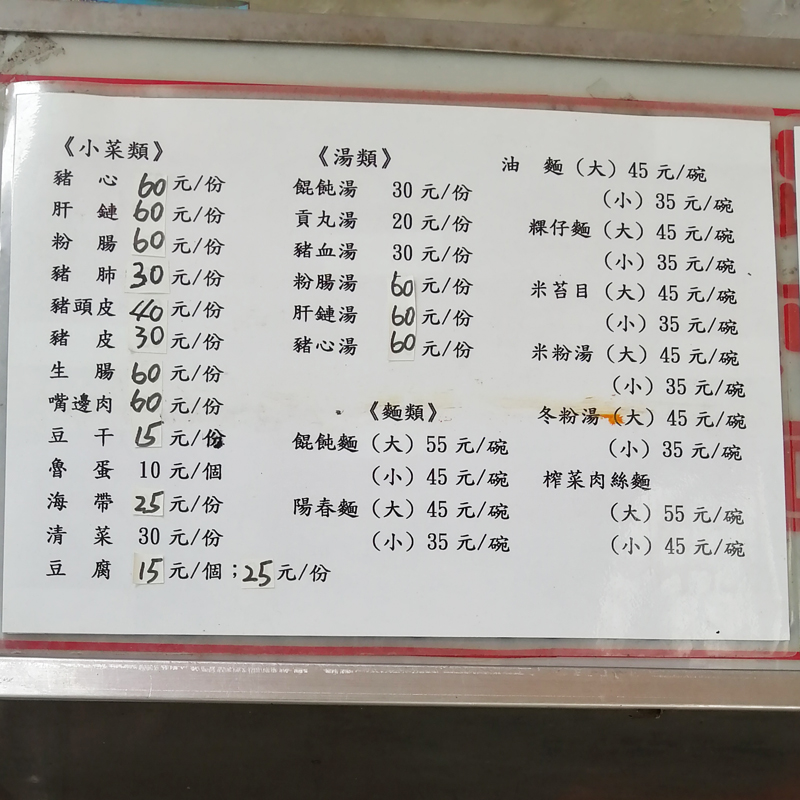 《小菜類》
豬心 60元/份
肝鏈 60元/份
粉腸 60元/份
豬肺 30元/份
豬頭皮 40元/份
豬皮 30元/份
生腸 60元/份
嘴邊肉 60元/份
豆干 15元/份
魯蛋 10元/個
海帶 25元/份
清菜 30元/份
豆腐 15元/個;25元/份
《湯類》
餛飩湯 30元/份
貢丸湯 20元/份
豬血湯 30元/份
粉腸湯 60元/份
肝鏈湯 60元/份
豬心湯 60元/份
《麵類》
餛飩麵(大)55元/碗
(小)45元/碗
陽春麵(大)45元/碗
(小)35元/碗
油麵(大)45元/碗
(小)35元/碗
粿仔麵(大)45元/碗
(小)35元/碗
米苔目(大)45元/碗
(小)35元/碗
米粉湯(大)45元/碗
(小)35元/碗
冬粉湯(大)45元/碗
(小)35元/碗
榨菜肉絲麵
(大)55元/碗
(小)45元/碗